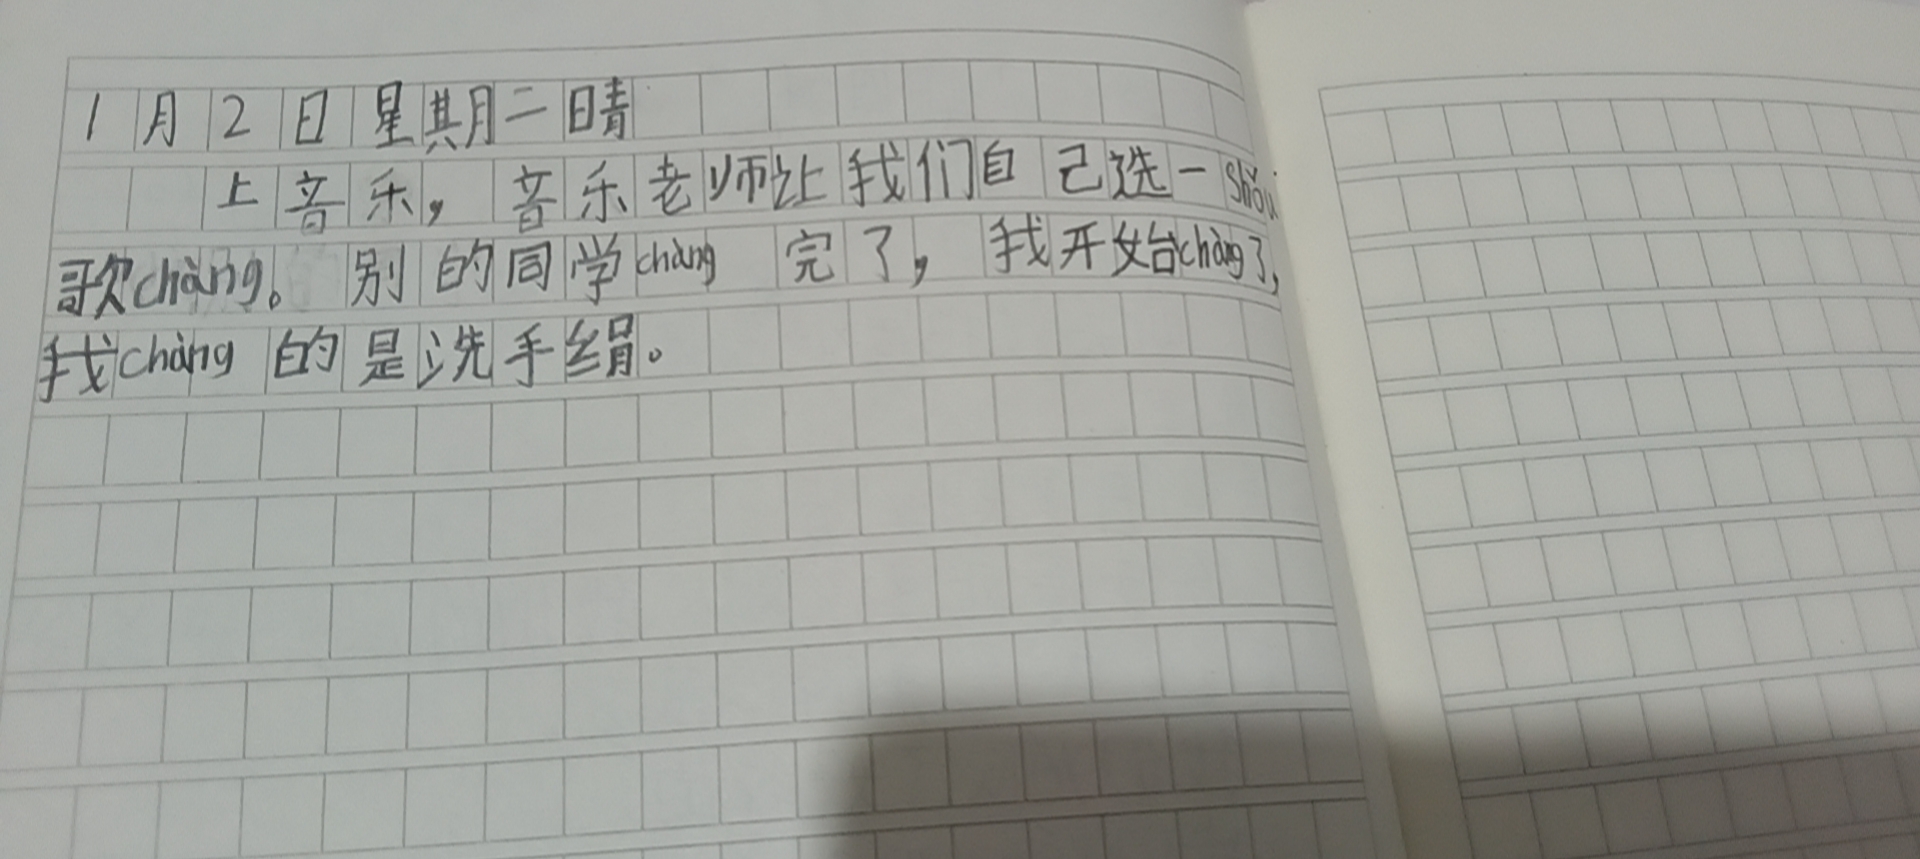 1月2日星期二晴
上音乐，音乐老师让我们自己选一shǒu
歌chàng。别的同学chàng完了，我开始chàng了，
我chàng的是洗手绢。